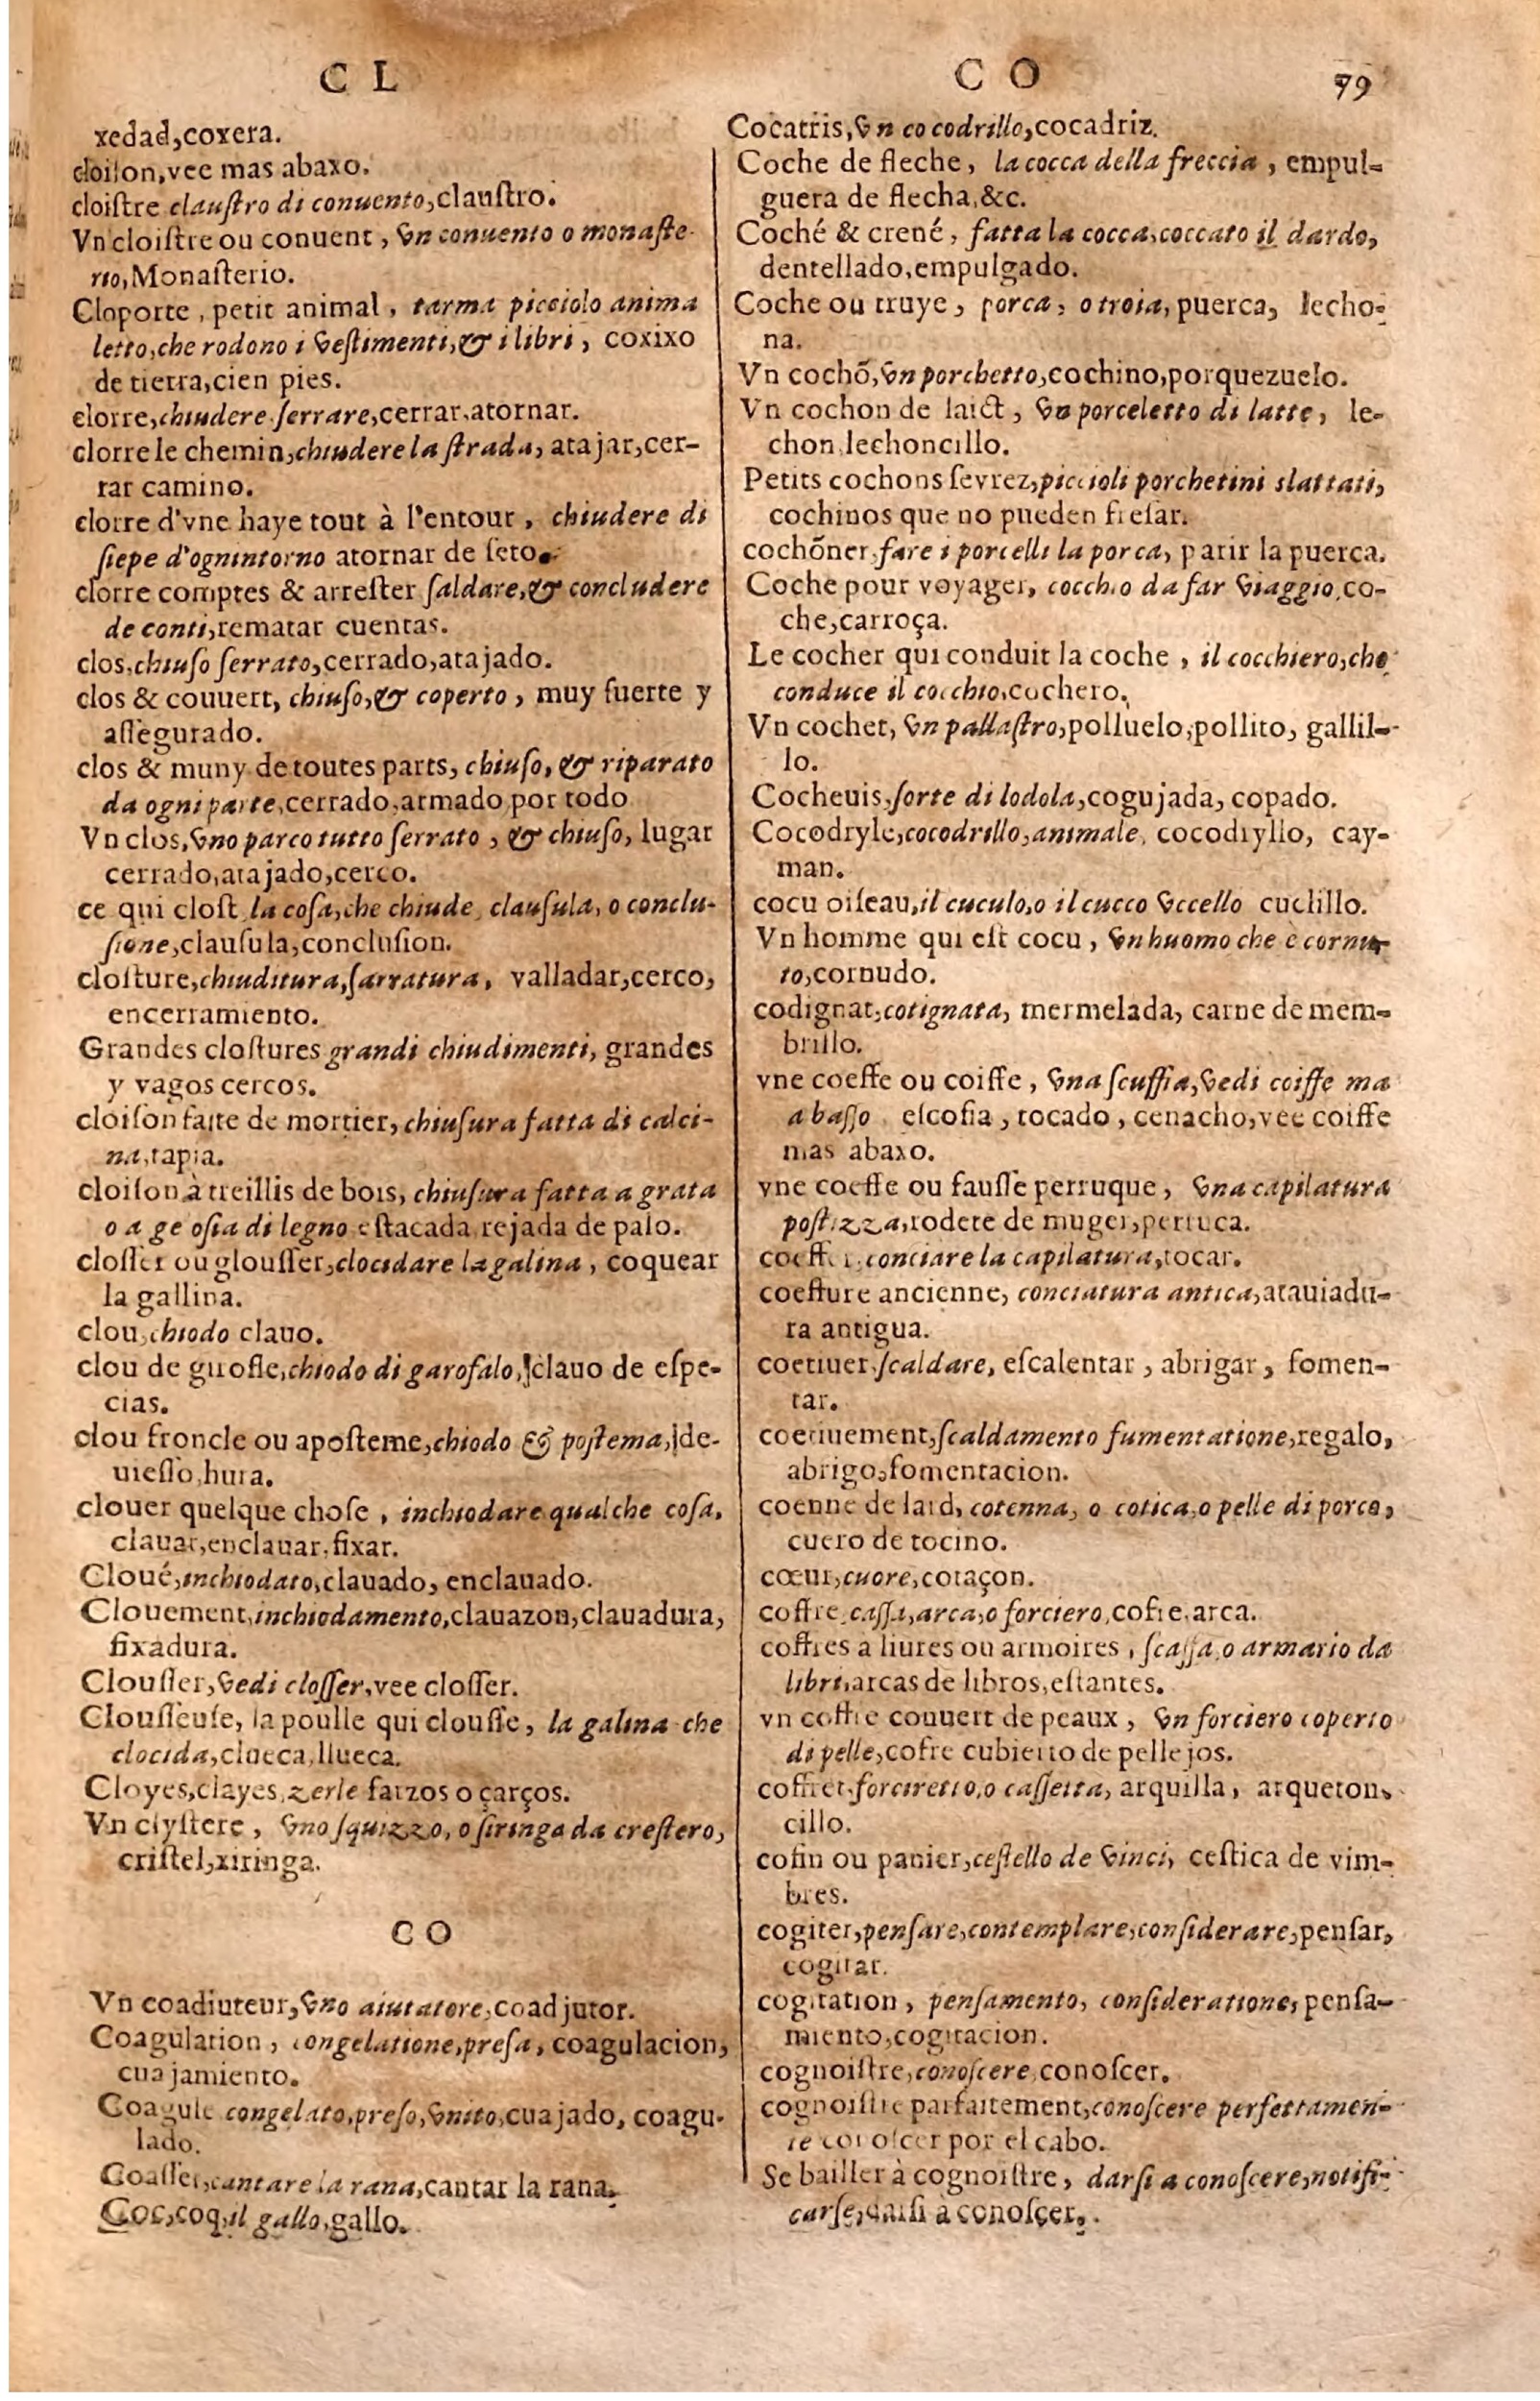 C L
xedad,coxera.
cloiſon,vee mas abaxo.
cloiſtre clauſtro di conuento,clauſtro.
Vn cloiſtre ou conuent, vn conuento o monaſte-
rio,Monaſterio.
Cloporte, petit animal, tarma picciolo anima
letto,che rodono i veſtimenti,& i libri, coxixo
de tierra,cien pies.
clorre,chiudere ſerrare,cerrar,atornar.
clorre le chemin,chiudere la ſtrada, atajar,cer-
rar camino.
clorre d'vne haye tout à l'entour, chiudere di
ſiepe d'ognintorno atornar de ſeto.
clorre comptes & arreſter ſaldare,& concludere
de conti,rematar cuentas.
clos,chiuſo ſerrato,cerrado,atajado.
clos & couuert, chiuſo,& coperto, muy fuerte y
aſſegurado.
clos & muny de toutes parts, chiuſo, & riparato
da ogni parte,cerrado,armado por todo
Vn clos,vno parco tutto ſerrato, & chiuſo, lugar
cerrado,atajado,cerco.
ce qui cloſt la coſa,che chiude, clauſula, o conclu-
ſione,clauſula,concluſion.
cloſture,chiuditura,ſarratura, valladar,cerco,
encerramiento.
Grandes cloſtures grandi chiudimenti, grandes
y vagos cercos.
cloiſon faite de mortier, chiuſura fatta di calci-
na,tapia.
cloiſon à treillis de bois, chiuſura fatta a grata
o a ge oſia di legno eſtacada,rejada de palo.
cloſſer ou glouſſer,clocidare la galina, coquear
la gallina.
clou,chiodo clauo.
clou de girofle,chiodo di garofalo,clauo de eſpe-
cias.
clou froncle ou apoſteme,chiodo & poſtema,de-
uieſſo,hura.
clouer quelque choſe, inchiodare qualche coſa,
clauar,enclauar,fixar.
Cloué,inchiodato,clauado, enclauado.
Clouement,inchiodamento,clauazon,clauadura,
fixadura.
Clouſſer,vedi cloſſer,vee cloſſer.
Clouſſeuſe, la poulle qui clouſſe, la galina che
clocida,clueca,llueca.
Cloyes,clayes,zerle farzos o çarços.
Vn clyſtere, vno ſquizzo, o ſiringa da creſtero,
criſtel,xiringa.
C O
Vn coadiuteur,vno aiutatore,coadjutor.
Coagulation, congelatione,preſa, coagulacion,
cuajamiento.
Coagule congelato,preſo,vnito,cuajado, coagu-
lado.
Coaſſer,cantare la rana,cantar la rana.
Coc,coq,il gallo,gallo.
C O 79
Cocatris,vn cocodrillo,cocadriz.
Coche de fleche, la cocca della freccia, empul-
guera de flecha,&c.
Coché & crené, fatta la cocca,coccato il dardo,
dentellado,empulgado.
Coche ou truye, porca, o troia, puerca, lecho-
na.
Vn cochõ,vn porchetto,cochino,porquezuelo.
Vn cochon de laict, vn porceletto di latte, le-
chon,lechoncillo.
Petits cochons ſevrez,piccioli porchetini slattati,
cochinos que no pueden freſar.
cochõner,fare i porcelli la porca, parir la puerca.
Coche pour voyager, cocchio da far viaggio,co-
che,carroça.
Le cocher qui conduit la coche, il cocchiero,che
conduce il cocchio,cochero.
Vn cochet, vn pallaſtro,polluelo,pollito, gallil-
lo.
Cocheuis,ſorte di lodola,cogujada, copado.
Cocodryle,cocodrillo,animale, cocodryllo, cay-
man.
cocu oiſeau,il cuculo,o il cucco vccello cuclillo.
Vn homme qui eſt cocu, vn huomo che è cornu-
to,cornudo.
codignat,cotignata, mermelada, carne de mem-
brillo.
vne coeffe ou coiffe, vna ſcuffia,vedi coiffe ma
a baſſo eſcofia, tocado, cenacho,vee coiffe
mas abaxo.
vne coeffe ou fauſſe perruque, vna capilatura
poſtizza,rodete de muger,perruca.
coeffer,conciare la capilatura,tocar.
coeffure ancienne, conciatura antica,atauiadu-
ra antigua.
coetiuer,ſcaldare, eſcalentar, abrigar, fomen-
tar.
coetiuement,ſcaldamento fumentatione,regalo,
abrigo,fomentacion.
coenne de lard, cotenna, o cotica,o pelle di porco,
cuero de tocino.
cœur,cuore,coraçon.
coffre,caſſa,arca,o forciero,cofre,arca.
coffres à liures ou armoires, ſcaſſa,o armario da
libri,arcas de libros,eſtantes.
vn coffre couuert de peaux, vn forciero coperto
di pelle,cofre cubierto de pellejos.
coffret,forciretto,o caſſetta, arquilla, arqueton-
cillo.
cofin ou panier,ceſtello de vinci, ceſtica de vim-
bres.
cogiter,penſare,contemplare,conſiderare,penſar,
cogitar.
cogitation, penſamento, conſideratione, penſa-
miento,cogitacion.
cognoiſtre,conoſcere,conoſcer.
cognoiſtre parfaitement,conoſcere perfettamen-
te conoſcer por el cabo.
Se bailler à cognoiſtre, darſi a conoſcere,notifi-
carſe,darſi à conoſçer.